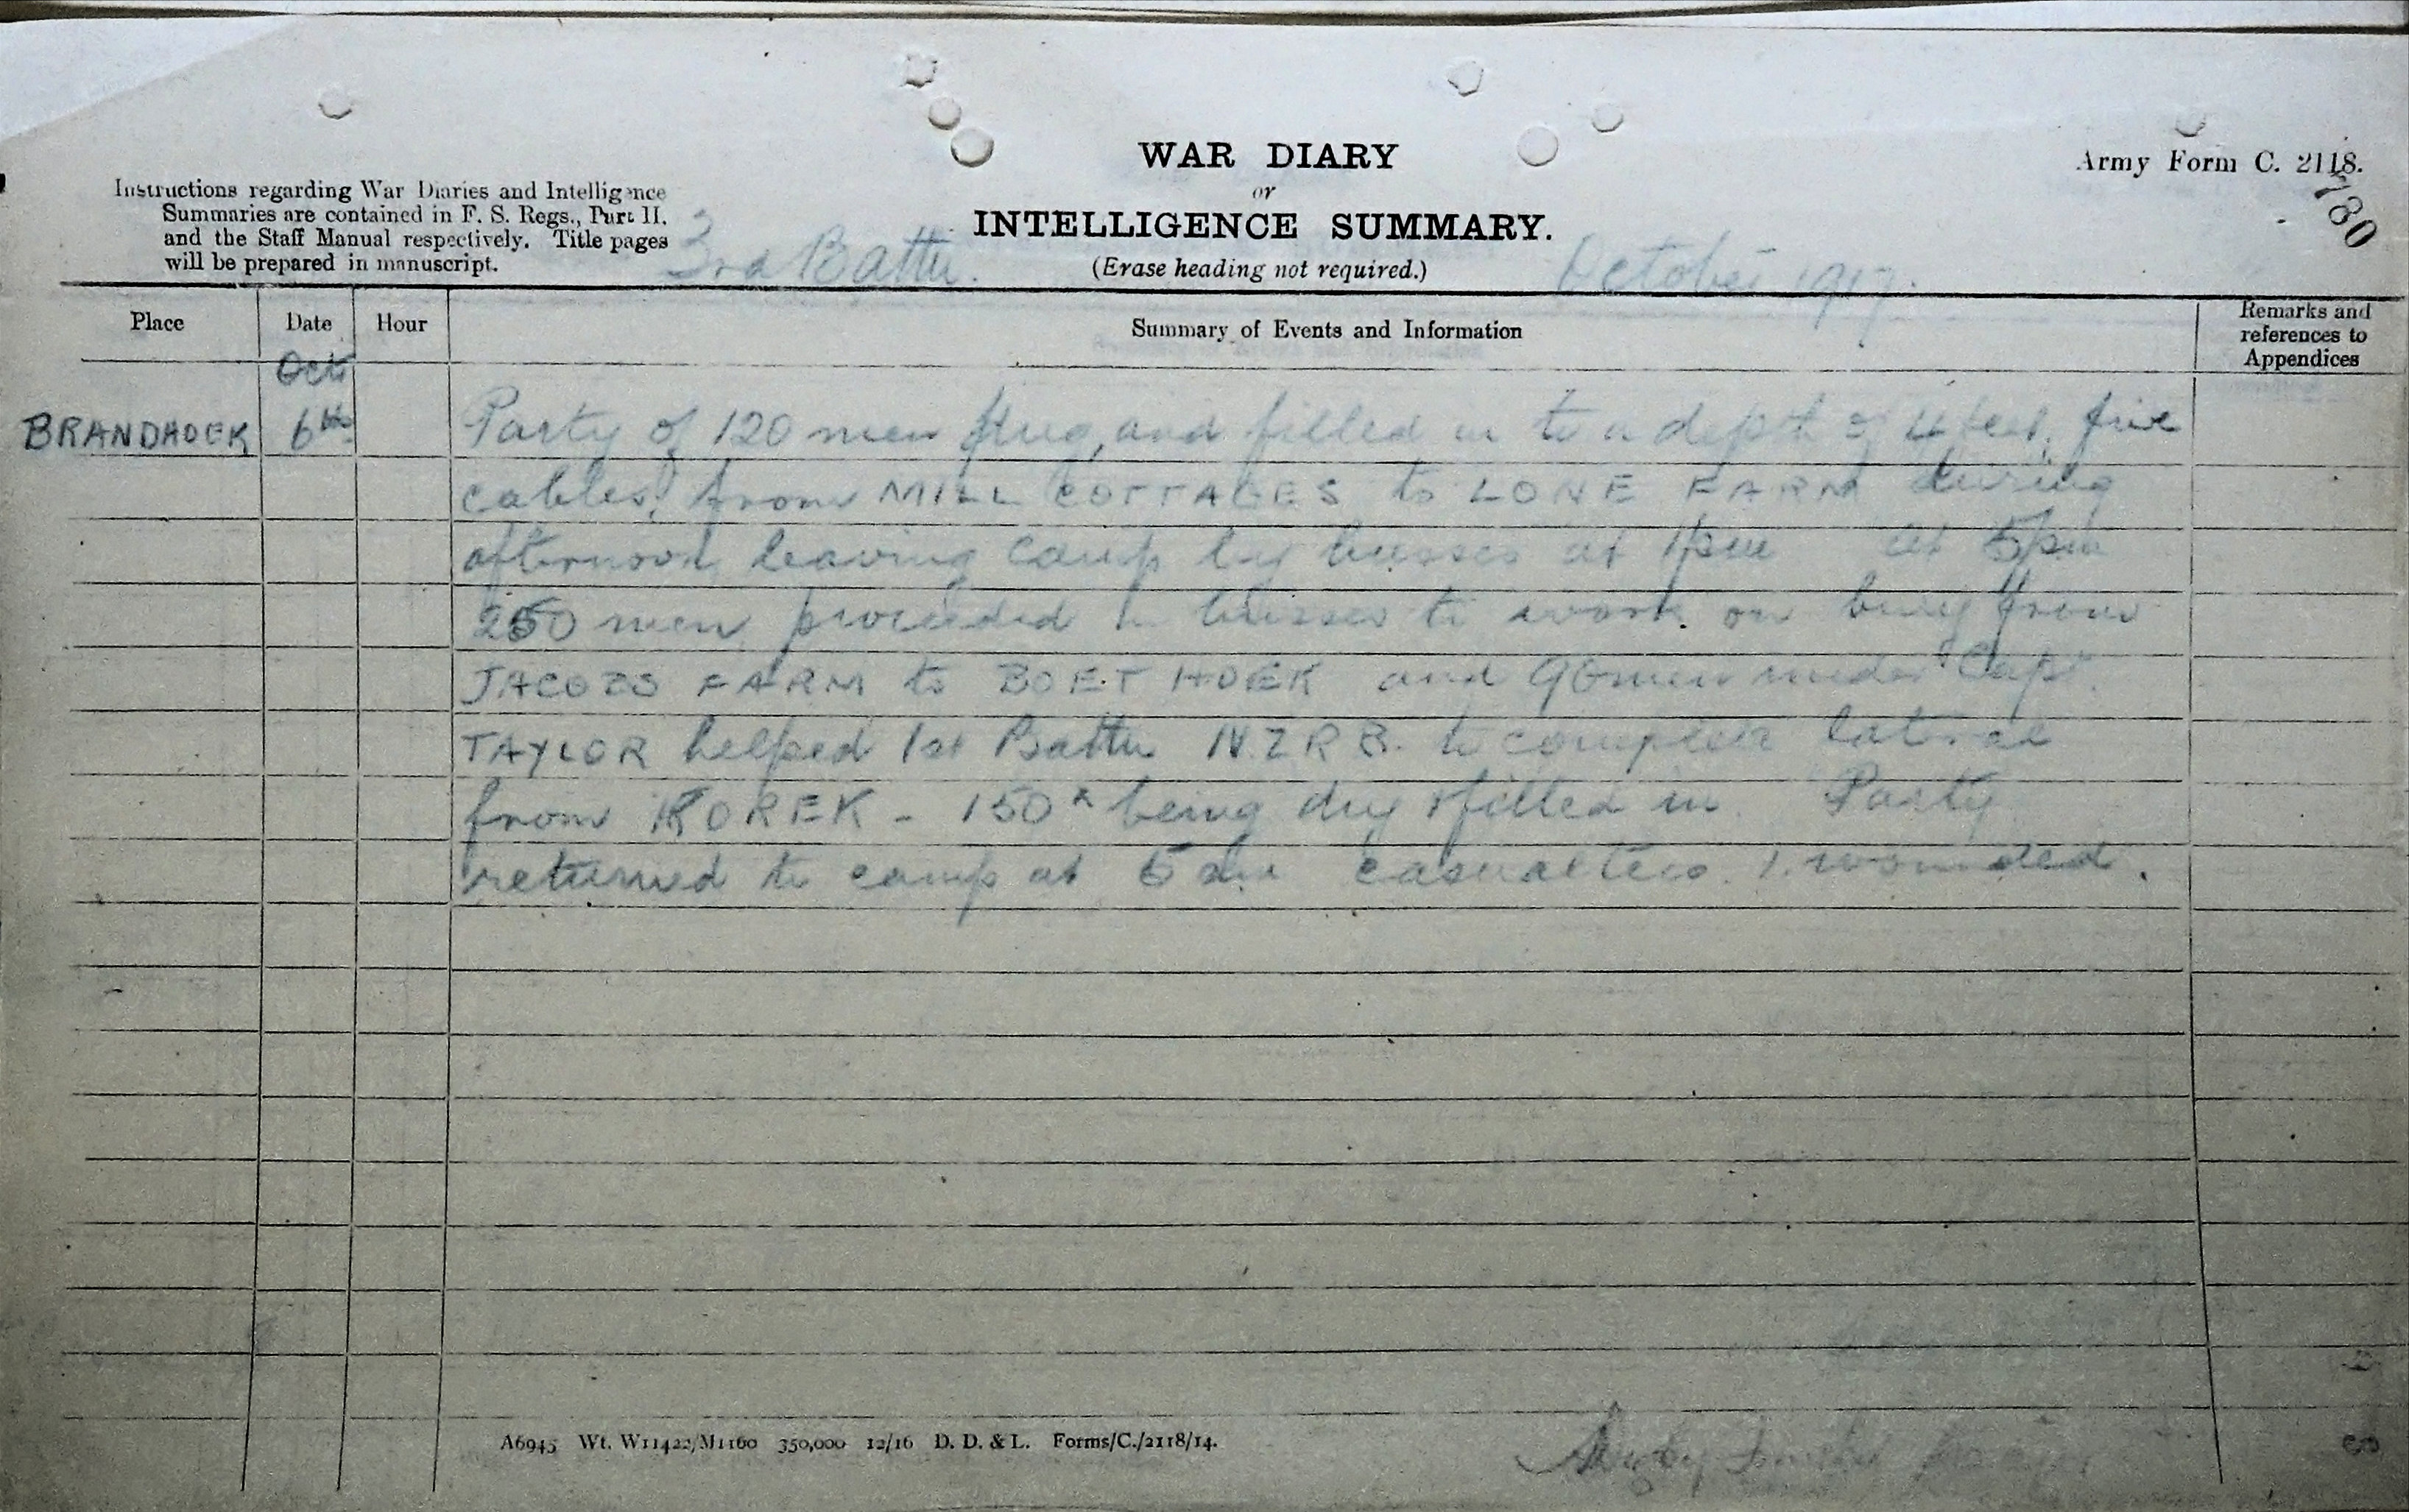 WAR DIARY
or
INTELLIGENCE SUMMARY.
(Erase heading not required.)
Army Form C. 2118.
780
Instructions regarding War Diaries and Intelligence
Summaries are contained in F. S. Regs., Part II.
and the Staff Manual respectively. Title pages
will be prepared in manuscript.
3rd Battn.
October 1917.
Place Date Hour Summary of Events and Information Remarks and references to Appendices
Oct
BRANDHOEK 6th Party of 120 men dug, and filled in to a depth of 4 feet, five
cables from MILL COTTAGES to LONE FARM during
afternoon leaving camp by busses at 1pm at 5pm
250 men proceeded in busses to work on bury from
JACOBS FARM to BOET HOEK and 90 men under Capt.
TAYLOR helped 1st Battn N.Z.R.B. to complete lateral
from KOREK - 150x being dug & filled in. Party
returned to camp at 5 am casualties. 1. wounded.
A6945 Wt. W11422/M1160 350,000 12/16 D. D. & L. Forms/C./2118/14.